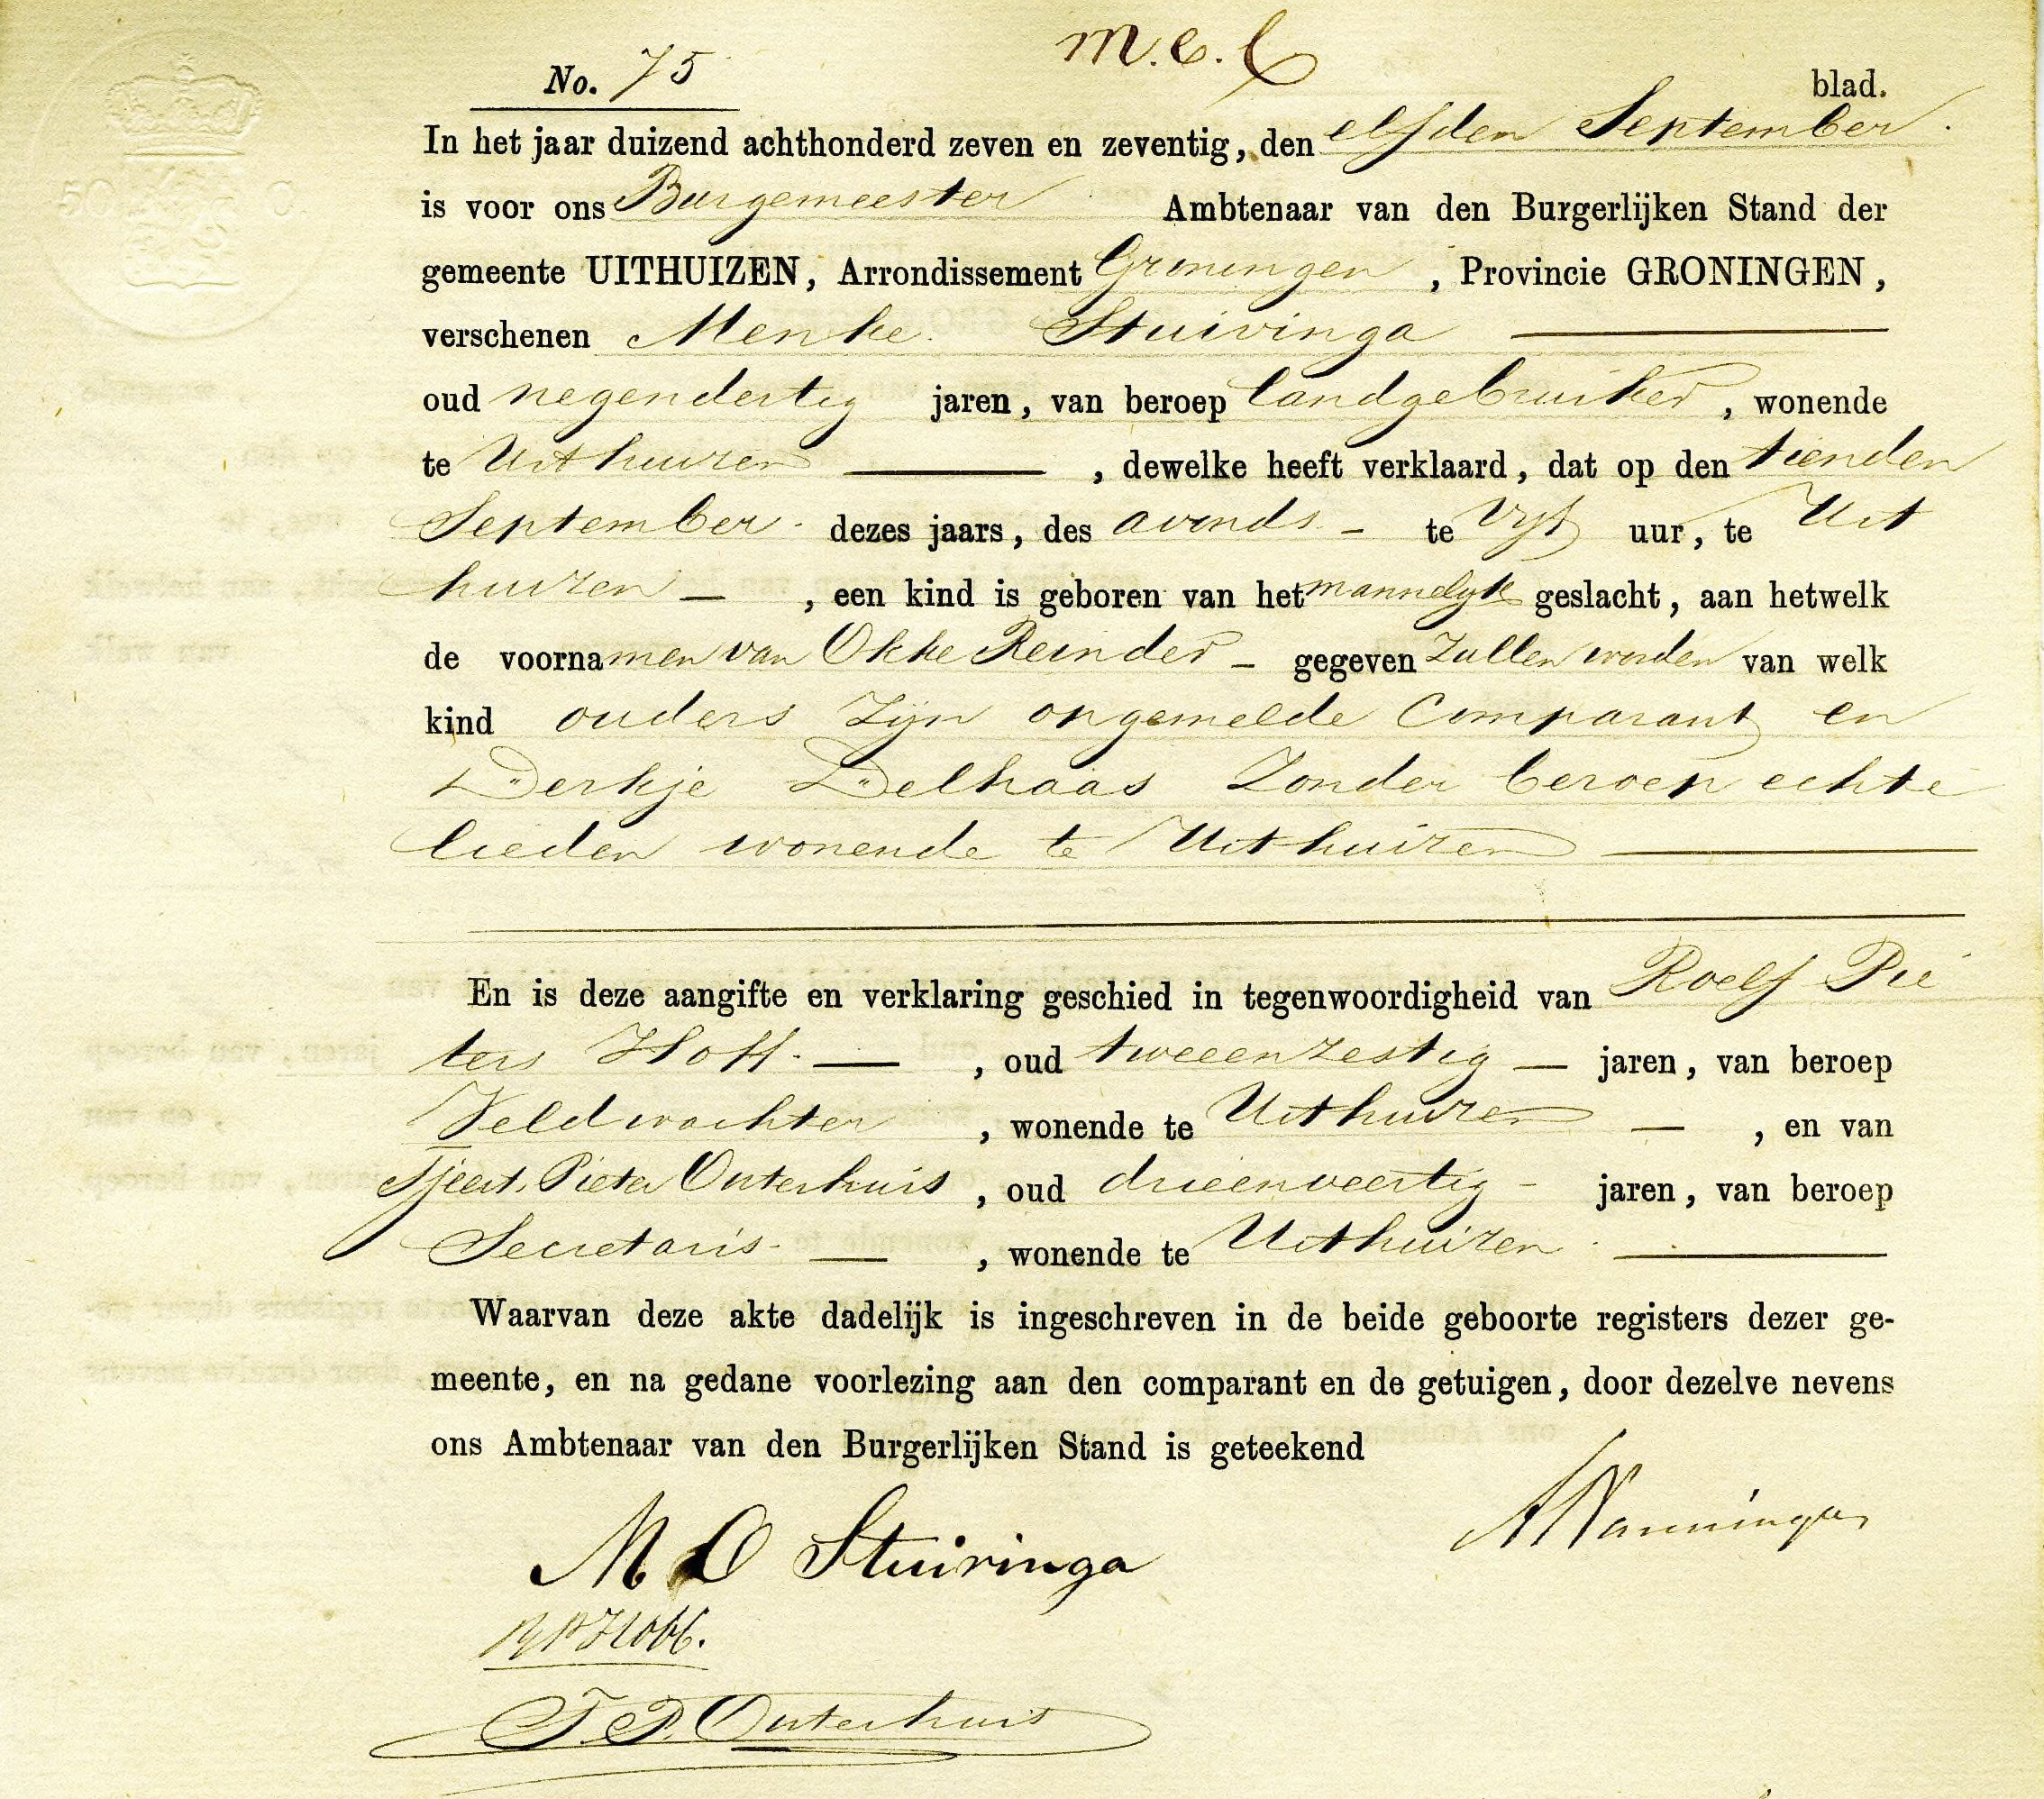 m.e.C
No. 75
blad.
In het jaar duizend achthonderd zeven en zeventig, den elfden September.
is voor ons Burgemeester Ambtenaar van den Burgerlijken Stand der
gemeente UITHUIZEN, Arrondissement Groningen, Provincie GRONINGEN,
verschenen Menke Stuivinga
oud negendertig jaren, van beroep landgebruiker, wonende
te Uithuizen, dewelke heeft verklaard, dat op den tienden
September dezes jaars, des avonds te vijf uur, te Uit
huizen, een kind is geboren van het mannelijk geslacht, aan hetwelk
de voornamen van Okke Reinder gegeven zullen worden van welk
kind ouders zijn opgemelde Comparant en
Derkje Delhaas zonder beroep echte
lieden wonende te Uithuizen
En is deze aangifte en verklaring geschied in tegenwoordigheid van Roelf Pie
ters Hoff, oud tweeenzestig jaren, van beroep
Veldwachter, wonende te Uithuizen, en van
Tjeert Pieter Onterhuis, oud drieenveertig jaren, van beroep
Secretaris, wonende te Uithuizen
Waarvan deze akte dadelijk is ingeschreven in de beide geboorte registers dezer ge-
meente, en na gedane voorlezing aan den comparant en de getuigen, door dezelve nevens
ons Ambtenaar van den Burgerlijken Stand is geteekend
M O Stuivinga
T. P. Onterhuis
50 C.